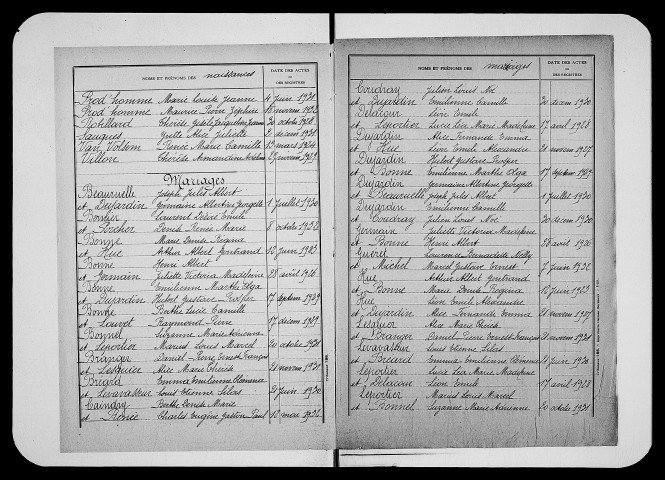 NOMS ET PRÉNOMS DES naissances
DATE DES ACTES
OU
DES REGISTRES
Prod'homme Marie Louise Jeanne 4 juin 1921
Prod'homme Maurice Pierre Joseph
Robillard Thérèse 30 octobre
Sauques Yvette Alice Juliette 2 decem 1921
Van Volsem Renée Marie Camille 13 mars 1924
Villon Thérèse
Mariages
Beauruelle Joseph Jules Albert
et Dujardin Germaine Albertine Georgette 1 juillet 1930
Bonnier Laurent Désiré Emile
et Porcher Denise Renée Marie 8 octobre
Bonne Marie Denise Regina
et Hue Arthur Albert Gontrand 12 juin 1923
Bonne Henri Albert
et Germain Juliette Victoria Madeleine 28 avril 1926
Bonne Emilienne Marthe Olga
et Dujardin Hubert Gustave Prosper 17 septem 1929
Bonne Berthe Lucie Camille
et Louvot Raymond Pierre 17 decem 1929
Bonnel Suzanne Marie Adrienne
et Leportier Marius Louis Marcel 20 octobre 1931
Branger Daniel Pierre Ernest François
et Lesquier Alice Marie Thérèse 21 novem 1931
Bréard Emma Emilienne Clémence
et Levavasseur Louis Etienne Silas juin 1930
Caindry Berthe Denise Marie
et Renée Charles Eugène Gaston Paul 12 mars
NOMS ET PRÉNOMS DES mariages
DATE DES ACTES
OU
DES REGISTRES
Coudray Julien Louis Noé
et Dujardin Emilienne Camille 20 decem 1930
Delacine Léon Emile
et Leportier Lucie Léa Marie Madeleine 17 avril 1928
Dujardin Alice Fernande Emma
et Hue Léon Emile Alexandre 21 novem 1927
Dujardin Hubert Gustave Prosper
et Bonne Emilienne Marthe Olga 17 septem 1929
Dujardin Germaine Albertine Georgette
et Beauruelle Joseph Jules Albert 1 juillet 1930
Dujardin Emilienne Camille
et Coudray Julien Louis Noé 20 decem 1930
Germain Juliette Victoria Madeleine
et Bonne Henri Albert 28 avril 1926
Laurence Bernadette Nelly
et Michel Marcel Gustave Ernest 7 juin
Hue Arthur Albert Gontrand
et Bonne Marie Denise Regina 12 juin 1923
Hue Léon Emile Alexandre
et Dujardin Alice Fernande Emma 21 novem 1927
Lesquier Alice Marie Thérèse
et Branger Daniel Pierre Ernest François 21 novem 1931
Levavasseur Louis Etienne Silas
et Bréard Emma Emilienne Clémence juin 1930
Leportier Lucie Léa Marie Madeleine
et Delacine Léon Emile 17 avril 1928
Leportier Marius Louis Marcel
et Bonnel Suzanne Marie Adrienne 20 octobre 1931